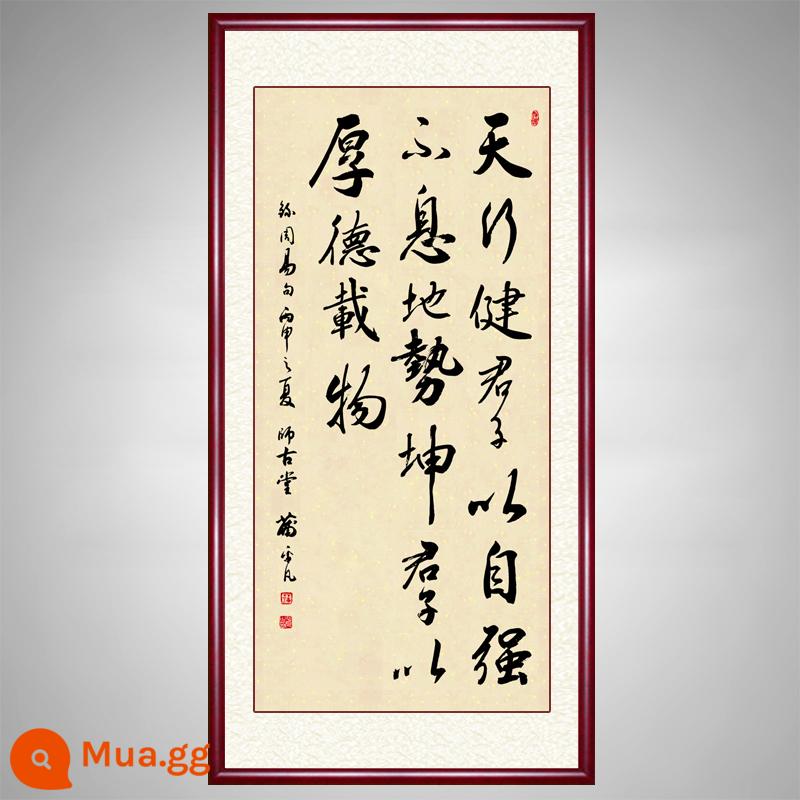 天行健君子以自强
不息地勢坤君子以
厚德載物
錄周易句丙申之夏 師古堂 平凡
Mua.gg